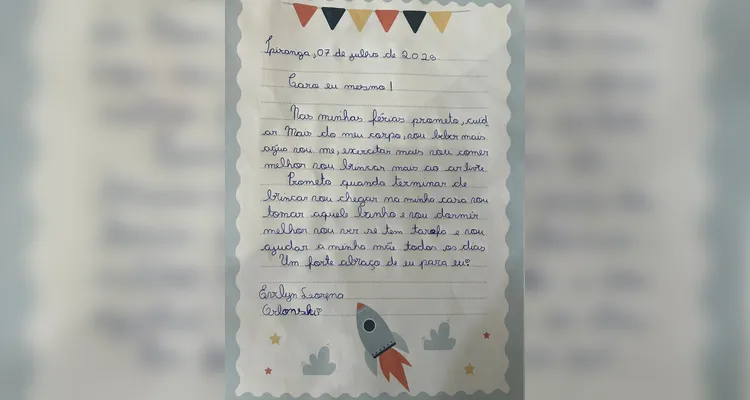 Ipiranga, 07 de julho de 2025
Caro eu mesmo!
Nas minhas férias prometo, cuid
ar Mais do meu corpo, vou beber mais
agua vou me, exercitar mais vou comer
melhor vou brincar mais ao ar livre.
Prometo quando terminar de
brincar vou chegar na minha casa vou
tomar aquele banho e vou dormir
melhor vou ver se tem tarefa e vou
ajudar a minha mãe todos os dias
Um forte abraço de eu para eu!
Evelyn Lorena
Orlonski